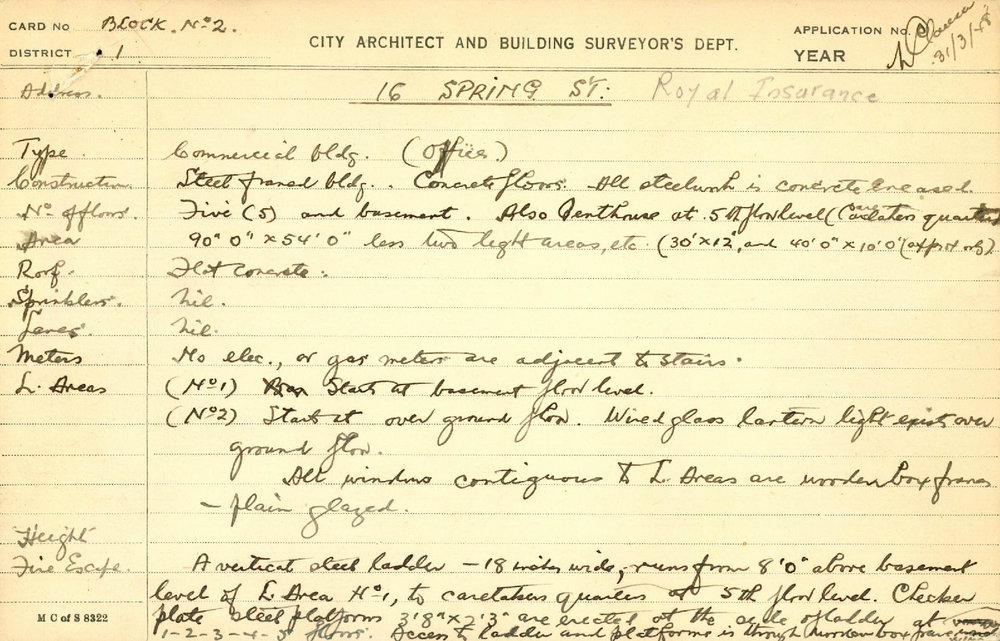 CARD No BLOCK. No 2.
DISTRICT 1
CITY ARCHITECT AND BUILDING SURVEYOR'S DEPT.
APPLICATION No.
YEAR
31/3/48
Address. 16 SPRING ST: Royal Insurance
Type. Commercial bldg. (Offices)
Construction. Steel framed bldg. Concrete floors. All steelwork is concrete encased.
No of floors. Five (5) and basement. Also Penthouse at 5th floor level (Caretakers quarters)
Area 90'0" x 54'0" less two light areas, etc. (30' x 12', and 40'0" x 10'0" (approx only).
Roof. Flat concrete.
Sprinklers. Nil.
Lanes. Nil.
Meters No elec., or gas meters are adjacent to stairs.
L. Areas (No 1) Starts at basement floor level.
(No 2) Starts at over ground floor. Wired glass lantern light exists over
ground floor.
All windows contiguous to L. Areas are wooden box frames
– plain glazed.
Height
Fire Escape. A vertical steel ladder – 18 inches wide, runs from 8'0" above basement
level of L. Area No 1, to caretakers quarters at 5th floor level. Checker
plate steel platforms 3'8" x 2'3" are erected at the side of ladder at
1-2-3-4-5 floors. Access to ladder and platforms is through wooden box frame
M C of S 8322